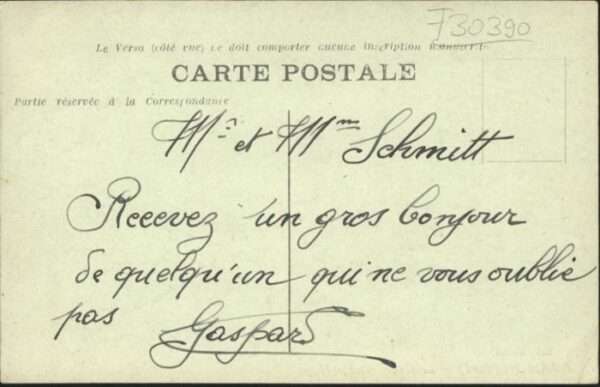 F30390
Le Verso (côté vue) ne doit comporter aucune inscription manuscrite
CARTE POSTALE
Partie réservée à la Correspondance
Mr et Mme Schmitt
Recevez un gros bonjour
de quelqu'un qui ne vous oublie
pas Gaspard